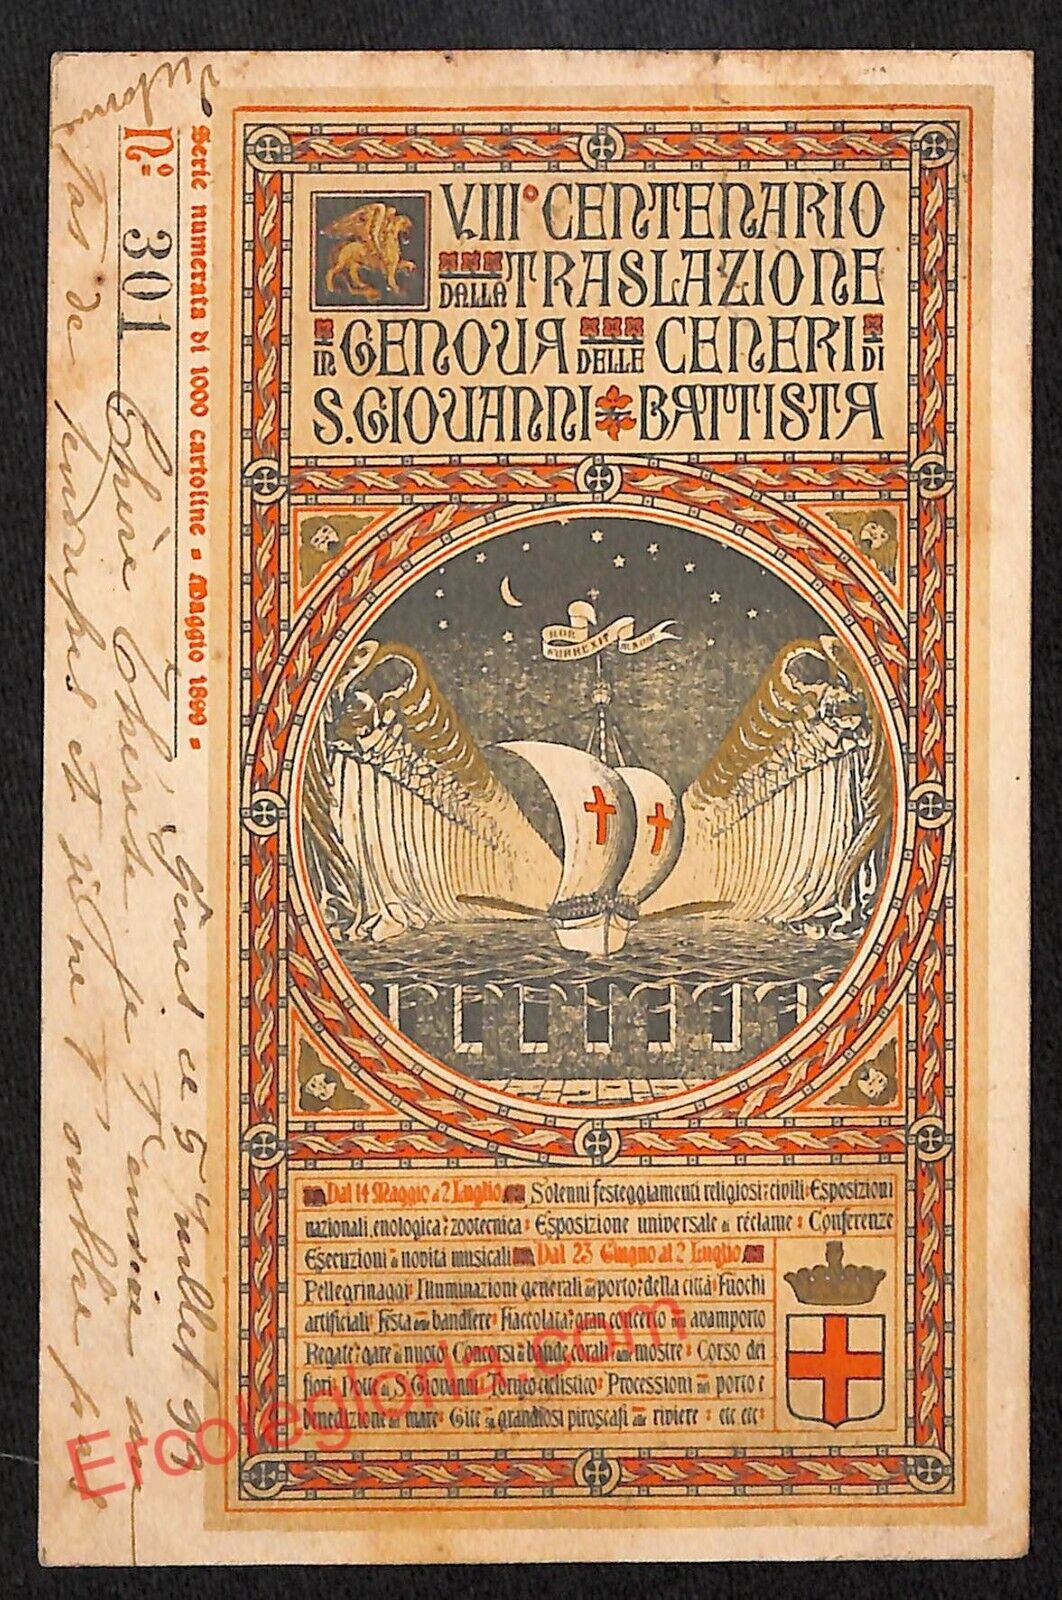 VIII° CENTENARIO
DALLA TRASLAZIONE
IN GENOVA DELLE CENERI DI
S. GIOVANNI BATTISTA
NON SURREXIT MAIOR
Dal 14 Maggio al 2 Luglio Solenni festeggiamenti religiosi e civili Esposizioni
nazionali, enologica e zootecnica Esposizione universale di réclame Conferenze
Esecuzioni di novità musicali Dal 23 Giugno al 2 Luglio
Pellegrinaggi Illuminazioni generali del porto e della città Fuochi
artificiali Festa delle bandiere Fiaccolata e gran concerto nell' avamporto
Regate e gare di nuoto Concorsi di bande corali alle mostre Corso dei
fiori Notte di S. Giovanni Torneo ciclistico Processioni nel porto e
benedizione del mare Gite su grandiosi piroscafi alle riviere etc etc
Serie numerata di 1000 cartoline = Maggio 1899 =
No. 301
Gênes ce 5 Juillet 99
Chère Thérèse je t'envoie un
tas de et n'oublie pas
Ercolegioria.com